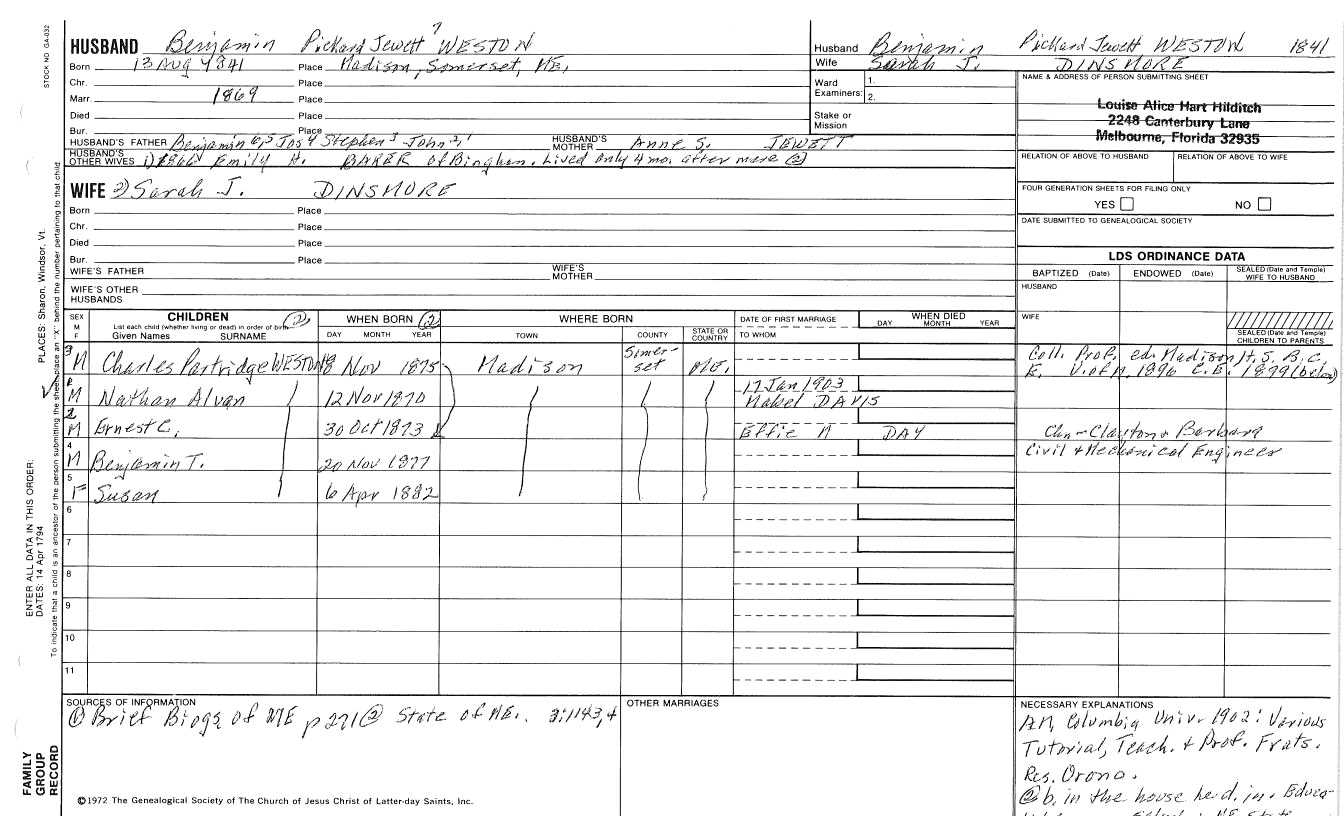 STOCK NO GA-032
HUSBAND Benjamin Pickard Jewett 7 WESTON
Born 13 Aug 1841 Place Madison, Somerset, ME.
Chr. Place
Marr. 1869 Place
Died Place
Bur. Place
HUSBAND'S FATHER Benjamin 6,5 Jos 4 Stephen 3 John 2,1 HUSBAND'S MOTHER Anne S. JEWETT
HUSBAND'S OTHER WIVES 1) 1866 Emily H. BAKER of Bingham. Lived only 4 mo. after marr. (2)
WIFE 2) Sarah J. DINSMORE
Born Place
Chr. Place
Died Place
Bur. Place
WIFE'S FATHER WIFE'S MOTHER
WIFE'S OTHER HUSBANDS
Husband Benjamin Pickard Jewett WESTON 1841
Wife Sarah J. DINSMORE
Ward Examiners: 1.
2.
Stake or Mission
NAME & ADDRESS OF PERSON SUBMITTING SHEET
Louise Alice Hart Hilditch
2248 Canterbury Lane
Melbourne, Florida 32935
RELATION OF ABOVE TO HUSBAND RELATION OF ABOVE TO WIFE
FOUR GENERATION SHEETS FOR FILING ONLY
YES NO
DATE SUBMITTED TO GENEALOGICAL SOCIETY
LDS ORDINANCE DATA
BAPTIZED (Date) ENDOWED (Date) SEALED (Date and Temple) WIFE TO HUSBAND
HUSBAND
WIFE
SEALED (Date and Temple) CHILDREN TO PARENTS
SEX M F CHILDREN (2) WHEN BORN (2) WHERE BORN DATE OF FIRST MARRIAGE WHEN DIED
List each child (whether living or dead) in order of birth
Given Names SURNAME DAY MONTH YEAR TOWN COUNTY STATE OR COUNTRY TO WHOM DAY MONTH YEAR
3 M Charles Partridge WESTON 8 Nov 1875 Madison Somerset Me. Coll. Prof. ed. Madison H.S. B.C.
E. U. of M. 1896 C.E. 1899 (below)
1 M Nathan Alvan 12 Nov 1870 17 Jan 1903
Mabel DAVIS
2 M Ernest C. 30 Oct 1873 Effie A DAY Chn - Clayton & Barbara
4 M Benjamin T. 20 Nov 1877 Civil & Mechanical Engineer
5 F Susan 6 Apr 1882
6
7
8
9
10
11
SOURCES OF INFORMATION
(1) Brief Biogs of ME p 271 (2) State of ME. 3:1143,4
OTHER MARRIAGES
NECESSARY EXPLANATIONS
AM, Columbia Univ. 1902: Various
Tutorial, Teach. & Prof. Frats.
Res. Orono.
(2) b. in the house he d. in. Educa-
©1972 The Genealogical Society of The Church of Jesus Christ of Latter-day Saints, Inc.
FAMILY GROUP RECORD
ENTER ALL DATA IN THIS ORDER:
DATES: 14 Apr 1794 PLACES: Sharon, Windsor, Vt.
To indicate that a child is an ancestor of the person submitting the sheet, place an "X" behind the number pertaining to that child